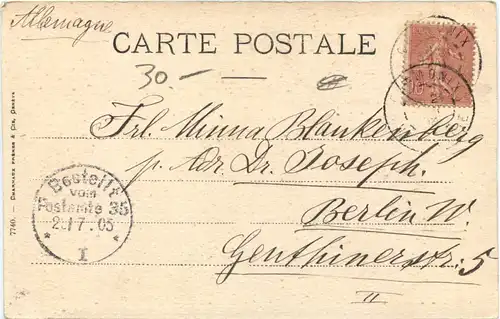 Allemagne
CARTE POSTALE
30.-
Frl. Minna Blankenberg
p. Adr. Dr. Joseph.
Berlin W.
Genthinerstr. 5
II
Bestellt
vom
Postamte 35
7.05
I
7740. — CHARNAUX FRÈRES & Cie, GENÈVE